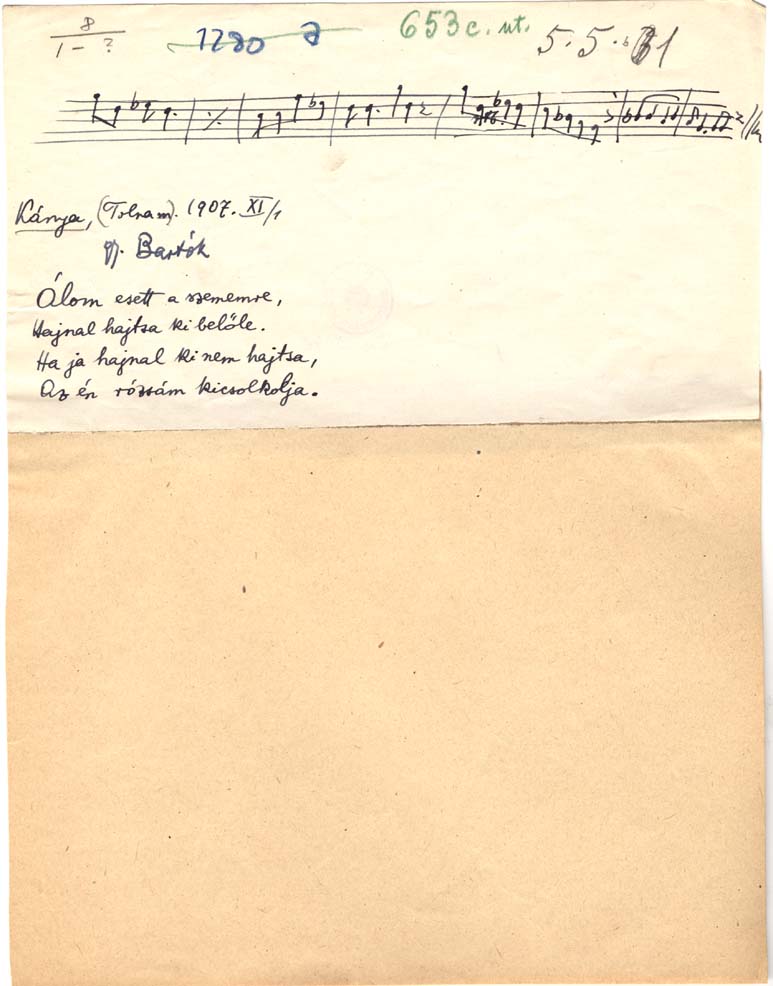 8
1 - ?
1280
653c. ut.
5. 5. b
Kánya, (Tolna m). 1907. XI/1
gy. Bartók
Álom esett a szememre,
Hajnal hajtsa ki belőle.
Ha ja hajnal ki nem hajtsa,
Az én rózsám kicsolkolja.